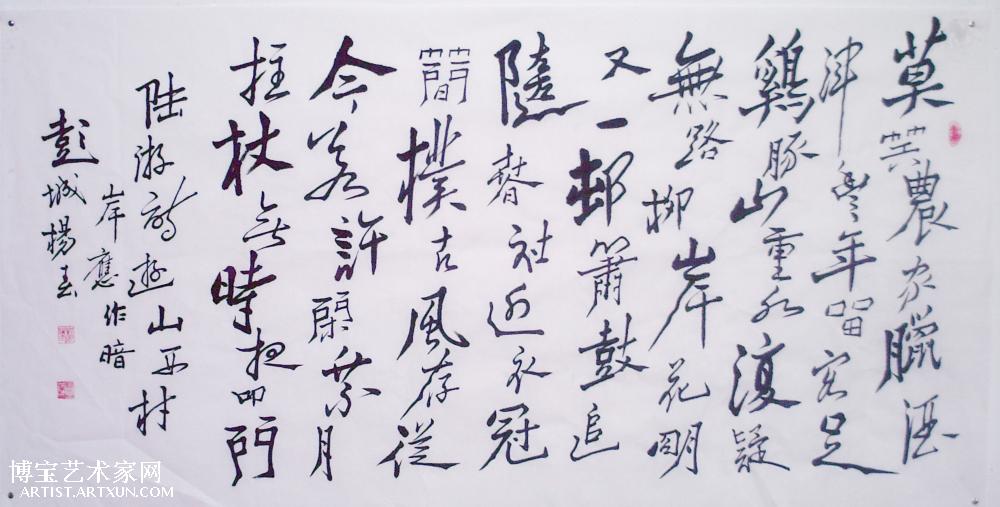 莫笑農家臘酒
渾豐年留客足
鷄豚山重水復疑
無路柳岸花明
又一邨簫鼓追
隨春社近衣冠
簡樸古風存從
今若許閑乘月
拄杖無時夜叩門
陸游詩遊山西村
岸應作暗
彭城楊春
博宝艺术家网
ARTIST.ARTXUN.COM